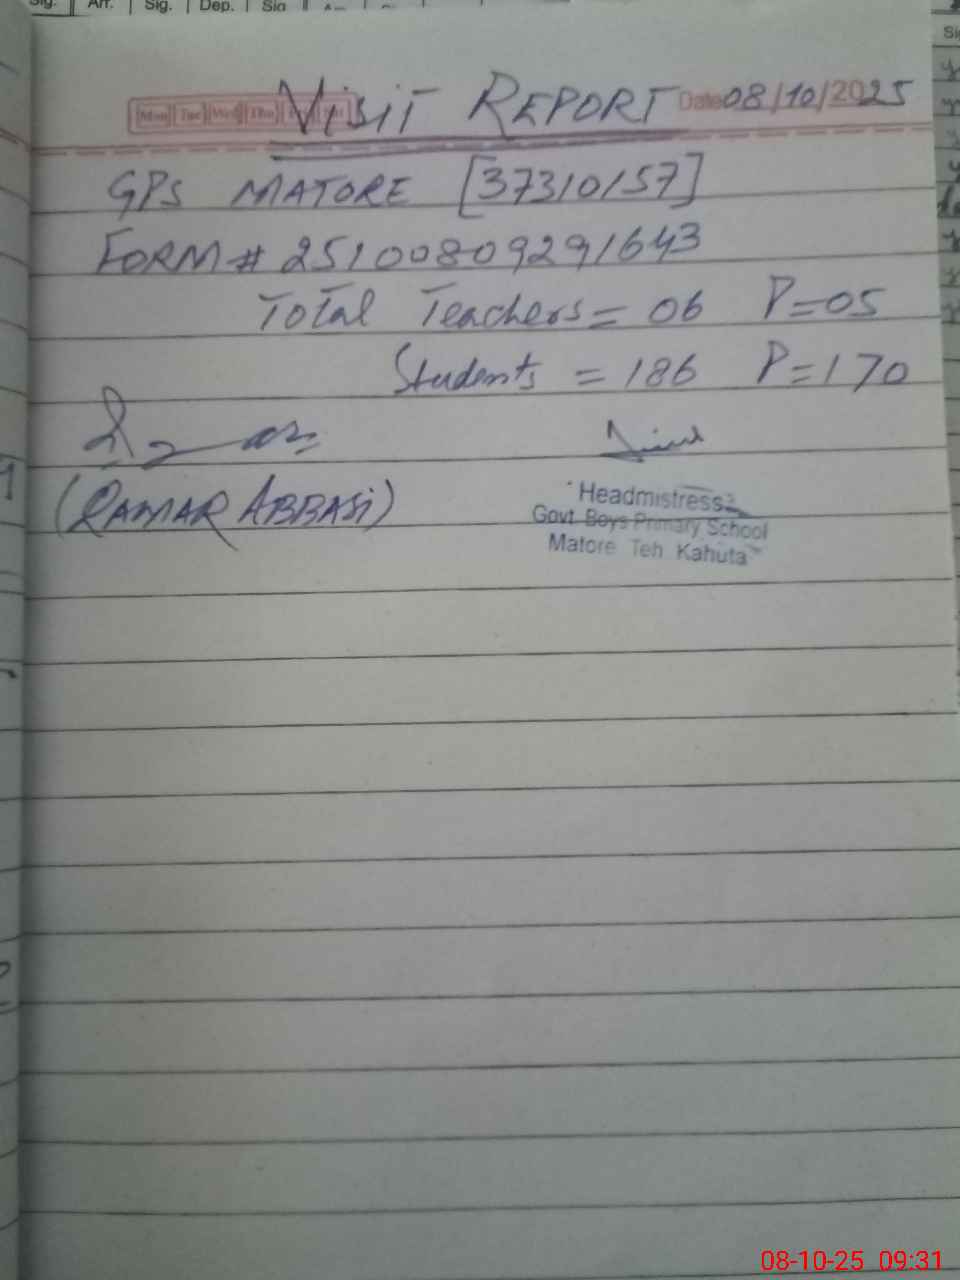 Sig. Arr. Sig. Dep. Sig
Mon Tue Wed Thu
VISIT REPORT Date 08/10/2025
GPS MATORE [37310157]
FORM # 25100809291643
Total Teachers = 06 P=05
Students = 186 P=170
(QAMAR ABBASI)
Headmistress
Govt Boys Primary School
Matore Teh Kahuta
08-10-25 09:31